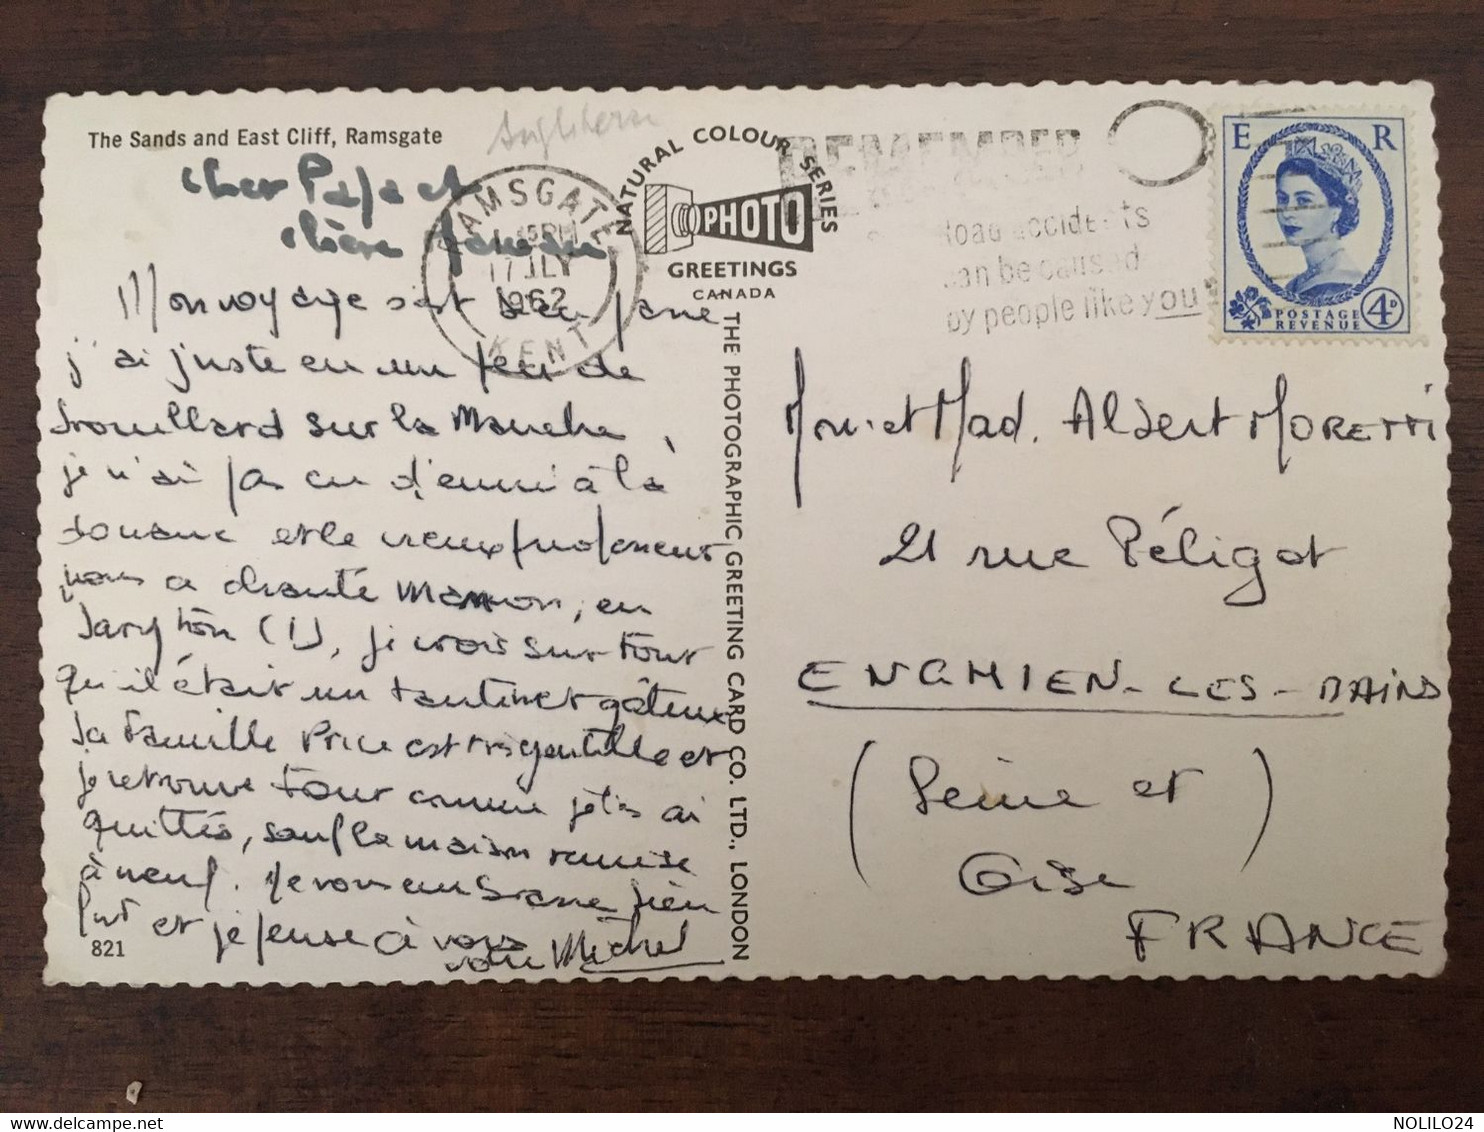 The Sands and East Cliff, Ramsgate
Angleterre
cher Papa et
chère Maman
Mon voyage s'est bien passé
j'ai juste eu un peu de
brouillard sur la Manche,
je n'ai pas eu d'ennui à la
douane et le vieux professeur
nous a chanté Manon, en
(1), je crois surtout
qu'il était un tantinet gâteux
La famille Price est très gentille et
je retrouve tout comme je l'ai
quitté, sauf la maison remise
à neuf. Je vous embrasse bien
fort et je pense à vous
votre Michel
821
RAMSGATE
5PM
17 JLY
1962
KENT
NATURAL COLOUR SERIES
PHOTO
GREETINGS
CANADA
THE PHOTOGRAPHIC GREETING CARD CO. LTD., LONDON
REMEMBER
Road accidents
can be caused
by people like you
E R
POSTAGE
REVENUE
4D
Mon. et Mad. Albert MORETTI
21 rue Péligot
ENGHIEN-LES-BAINS
(Seine et
Oise)
FRANCE
NOLILO24